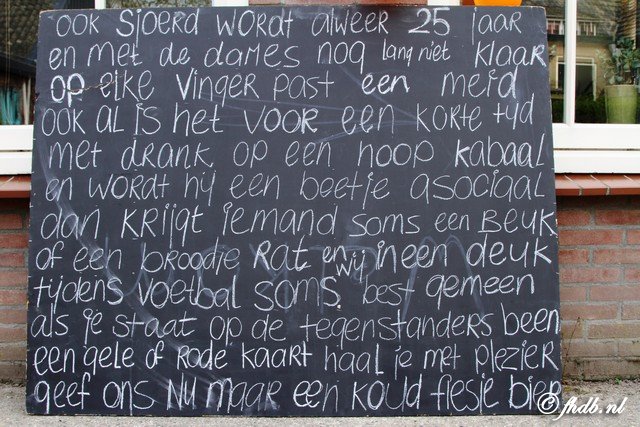 ook Sjoerd wordt alweer 25 jaar
en met de dames nog lang niet klaar
op elke vinger past een meid
ook al is het voor een korte tyd
met drank op een hoop kabaal
en wordt hij een beetje asociaal
dan krijgt iemand soms een Beuk
of een broodje Rat en wij ineen deuk
tijdens voetbal soms best gemeen
als je staat op de tegenstanders been
een gele of Rode kaart haal je met plezier
geef ons Nu maar een koud flesje bier
© fhdb.nl